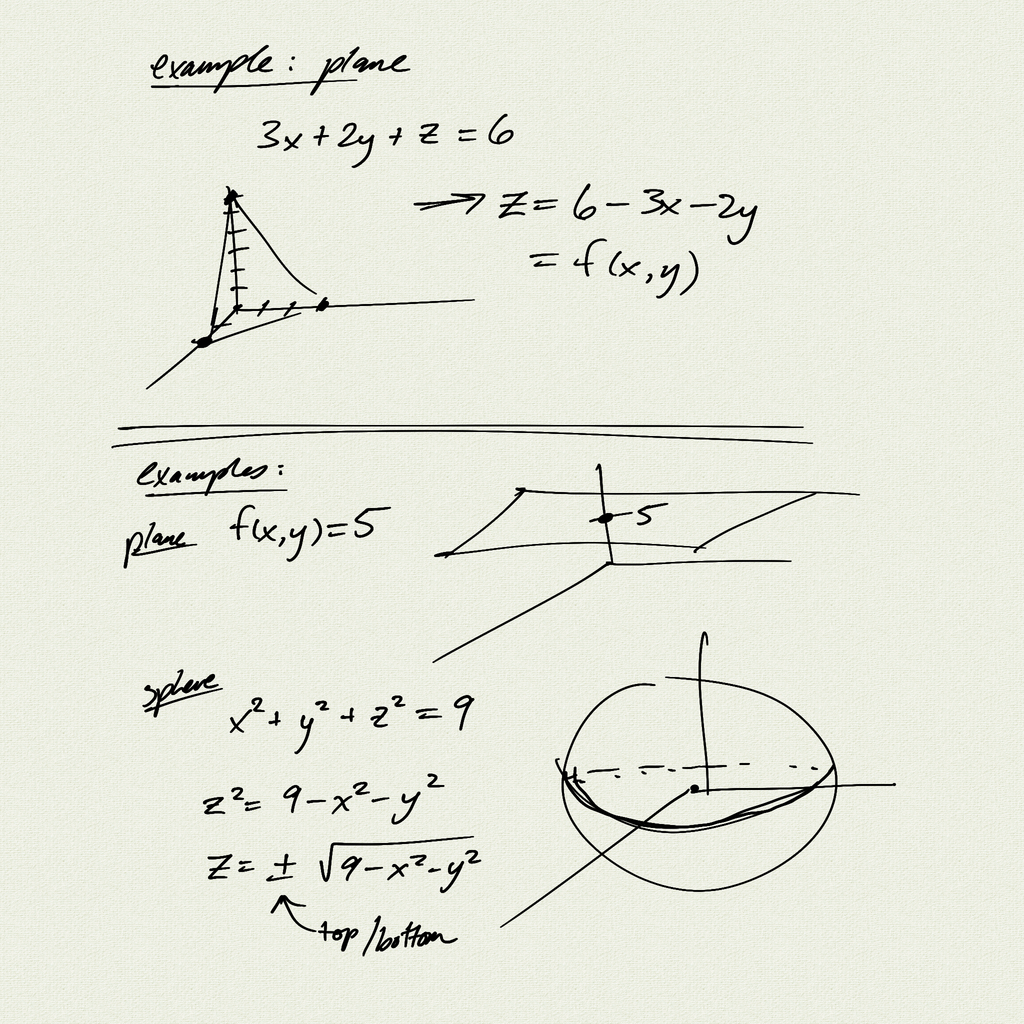 example: plane
3x + 2y + z = 6
→ z = 6 - 3x - 2y
= f(x,y)
examples:
plane f(x,y) = 5
5
sphere
x² + y² + z² = 9
z² = 9 - x² - y²
z = ± √(9 - x² - y²)
top/bottom